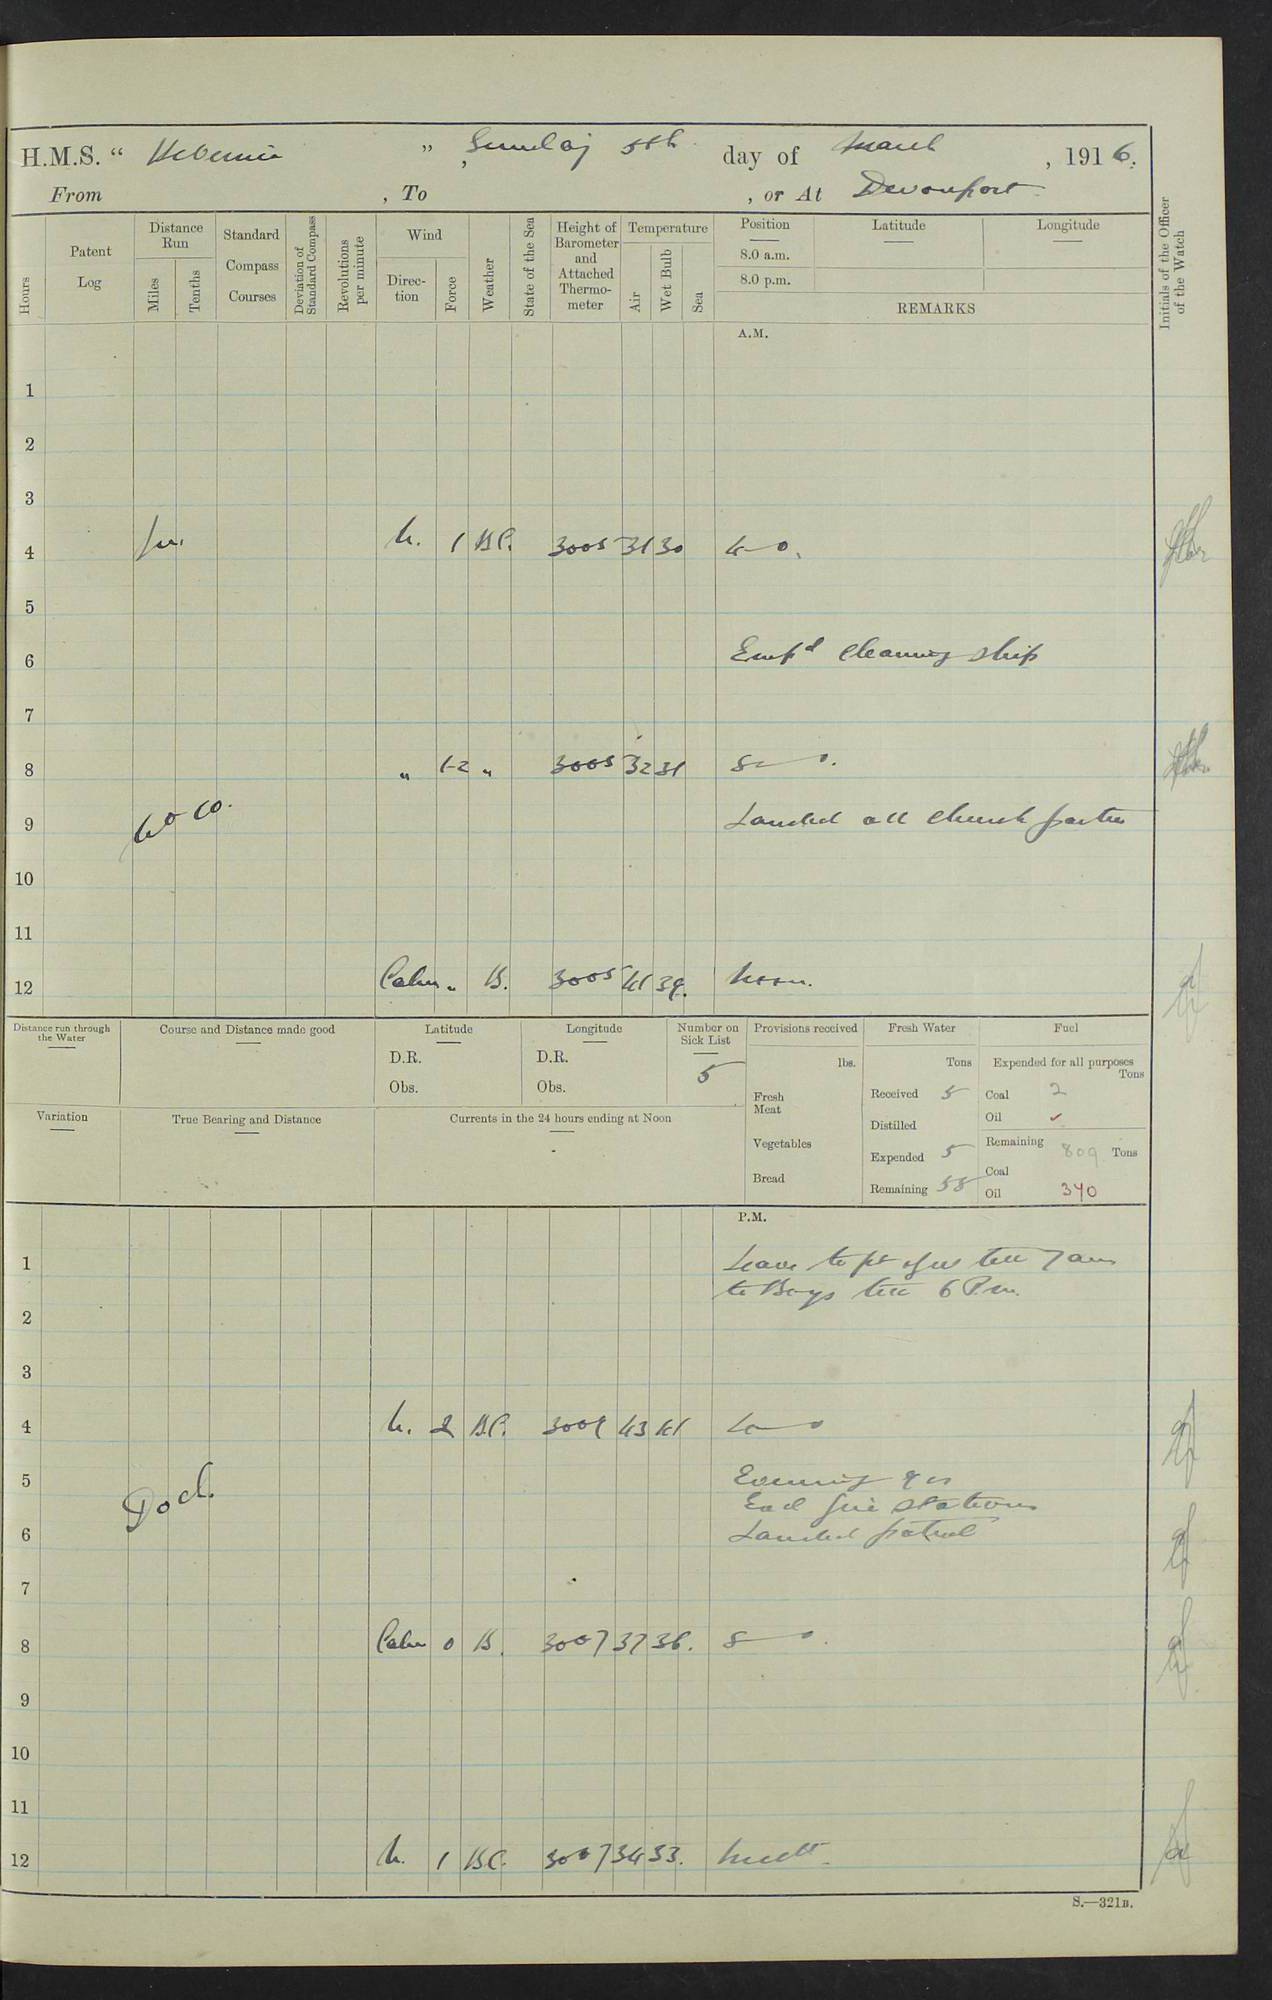 H.M.S. “ Hibernia ” , Sunday 5th day of March , 1916.
From , To , or At Devonport
Hours
Patent Log
Distance Run
Miles
Tenths
Standard Compass Courses
Deviation of Standard Compass
Revolutions per minute
Wind
Direction
Force
Weather
State of the Sea
Height of Barometer and Attached Thermometer
Temperature
Air
Wet Bulb
Sea
Position
Latitude
Longitude
8.0 a.m.
8.0 p.m.
REMARKS
Initials of the Officer of the Watch
A.M.
1
2
3
4 N. 1 B.C. 3005 31 30 4—0.
5
6 Emp^d cleaning ship
7
8 " 1-2 " 3005 32 31 8—0.
9 Landed all church parties
10
11
12 Calm " B. 3005 41 39. Noon.
Distance run through the Water
Course and Distance made good
Latitude
D.R.
Obs.
Longitude
D.R.
Obs.
Number on Sick List
5
Provisions received
lbs.
Fresh Meat
Vegetables
Bread
Fresh Water
Tons
Received 5
Distilled
Expended 5
Remaining 58
Fuel
Expended for all purposes
Tons
Coal 2
Oil ✓
Remaining Tons
Coal 809
Oil 340
Variation
True Bearing and Distance
Currents in the 24 hours ending at Noon
P.M.
1 Leave to pt of w till 7 am
to Boys till 6 P.m.
2
3
4 N. 2 B.C. 3009 43 41 4—0
5 Evening qrs
Ex^d fire stations
6 Landed patrol
7
8 Calm 0 B. 3007 37 36. 8—0.
9
10
11
12 N. 1 B.C. 3007 34 33. Midt.
S.—321B.